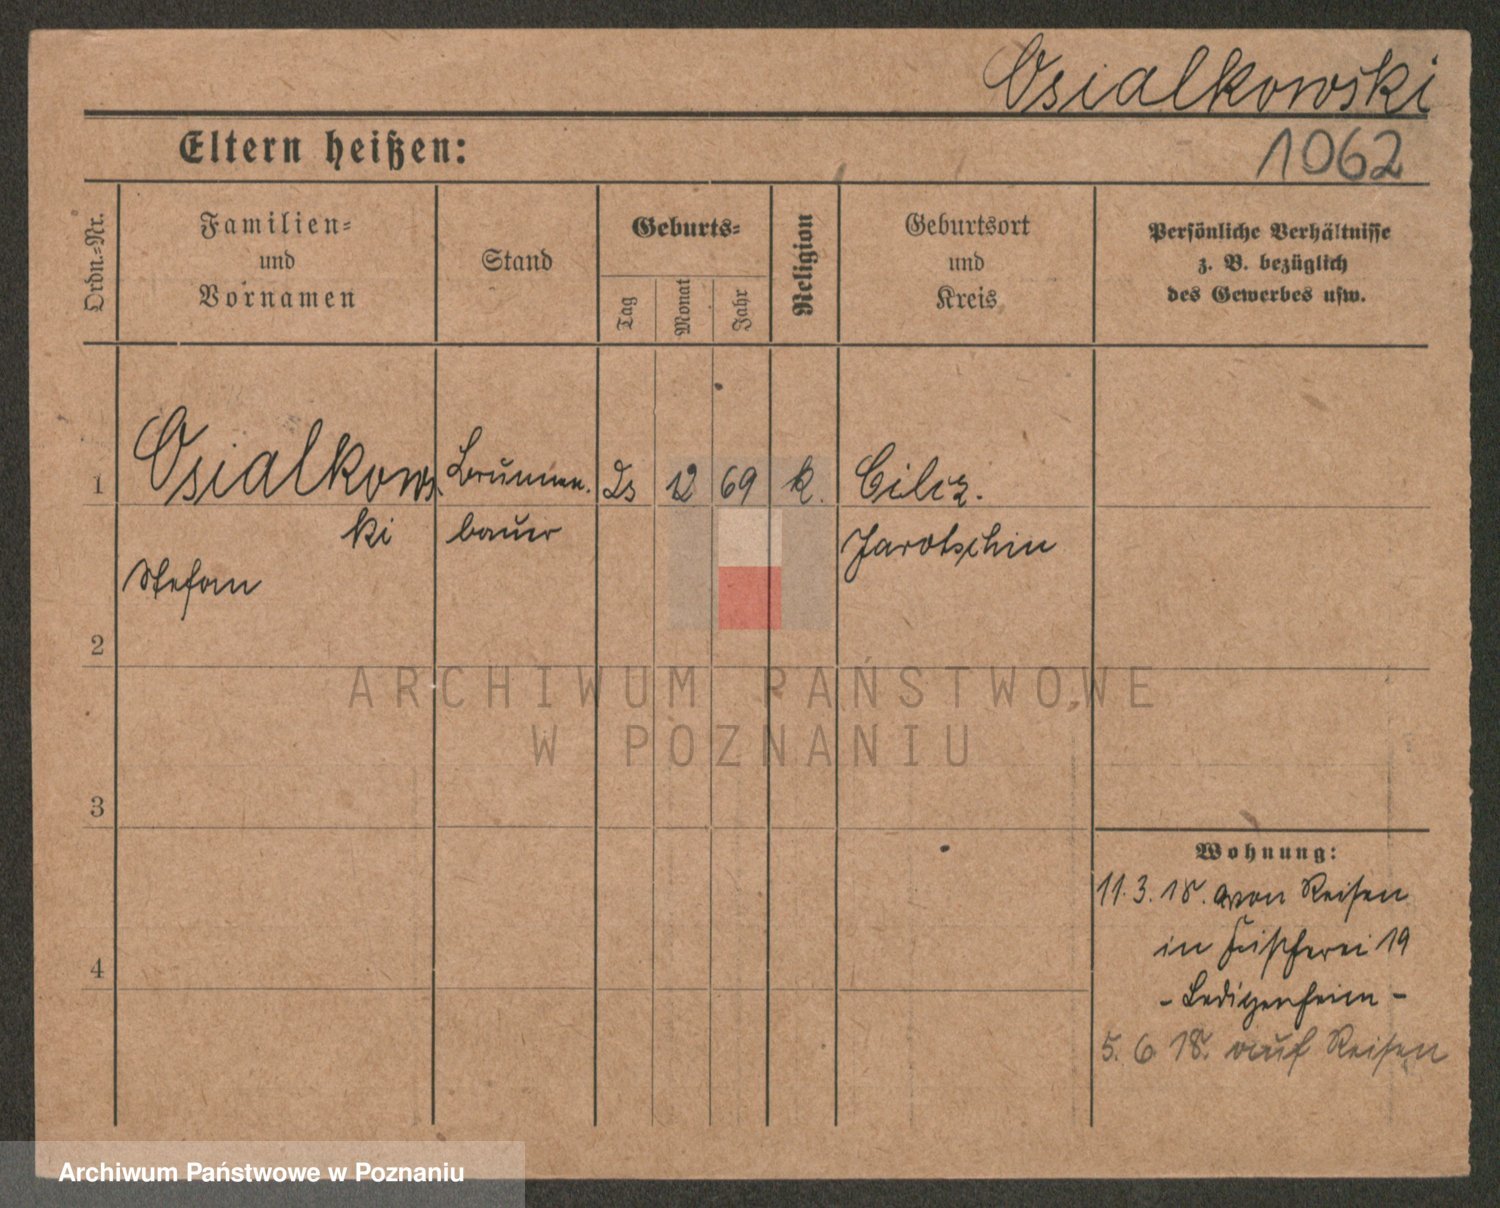 Osialkowski
Eltern heißen:
1062
Ordn.-Nr.
Familien-
und
Vornamen
Stand
Geburts-
Tag
Monat
Jahr
Religion
Geburtsort
und
Kreis
Persönliche Verhältnisse
z. B. bezüglich
des Gewerbes usw.
1
Osialkows
ki
Stefan
Brunnen.
bauer
12
69
k.
Cilcz.
Jarotschin
2
3
4
Wohnung:
11.3.18. von Reisen
in Fischerei 19
- Ledigenheim -
5.6 18. auf Reisen
ARCHIWUM PAŃSTWOWE
W POZNANIU
Archiwum Państwowe w Poznaniu